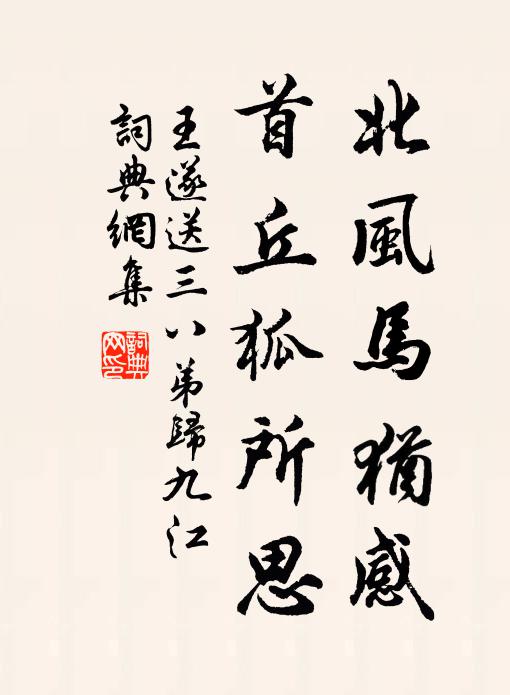 北風馬猶感
首丘狐所思
王遂送三八弟歸九江
詞典網集
詞典网印